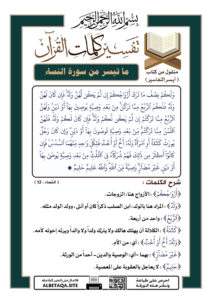 بسم الله الرحمن الرحيم
تفسير كلمات القرآن
منقول من كتاب
( أيسر التفاسير )
ما تيسر من سورة النساء
وَلَكُمْ نِصْفُ مَا تَرَكَ أَزْوَاجُكُمْ إِن لَّمْ يَكُن لَّهُنَّ وَلَدٌ فَإِن كَانَ لَهُنَّ
وَلَدٌ فَلَكُمُ الرُّبُعُ مِمَّا تَرَكْنَ مِن بَعْدِ وَصِيَّةٍ يُوصِينَ بِهَا أَوْ دَيْنٍ وَلَهُنَّ
الرُّبُعُ مِمَّا تَرَكْتُمْ إِن لَّمْ يَكُن لَّكُمْ وَلَدٌ فَإِن كَانَ لَكُمْ وَلَدٌ فَلَهُنَّ
الثُّمُنُ مِمَّا تَرَكْتُم مِّن بَعْدِ وَصِيَّةٍ تُوصُونَ بِهَا أَوْ دَيْنٍ وَإِن كَانَ رَجُلٌ
يُورَثُ كَلَالَةً أَوِ امْرَأَةٌ وَلَهُ أَخٌ أَوْ أُخْتٌ فَلِكُلِّ وَاحِدٍ مِّنْهُمَا السُّدُسُ فَإِن
كَانُوا أَكْثَرَ مِن ذَلِكَ فَهُمْ شُرَكَاءُ فِي الثُّلُثِ مِن بَعْدِ وَصِيَّةٍ يُوصَى بِهَا
أَوْ دَيْنٍ غَيْرَ مُضَارٍّ وَصِيَّةً مِّنَ اللَّهِ وَاللَّهُ عَلِيمٌ حَلِيمٌ
شرح الكلمات :
( النساء : 12 )
﴿أَزْوَاجُكُمْ﴾ : الأزواج هنا: الزوجات.
﴿وَلَدٌ﴾ : المراد هنا بالولد: ابن الصلب ذكراً كان أو أنثى، وولد الولد مثله.
﴿الرُّبُعُ﴾ : واحد من أربعة.
﴿كَلَالَةً﴾ : الكلالة أن يهلك هالك ولا يترك ولداً ولا والداً ويرثه إخوته لأمه.
﴿لَهُ أَخٌ أَوْ أُخْتٌ﴾ : أي: من الأم.
﴿غَيْرَ مُضَارٍّ﴾ : بهما -أي: الوصية والدين- أحداً من الورثة.
﴿حَلِيمٌ﴾ : لا يعاجل بالعقوبة على المعصية.
ALBETAQA.SITE